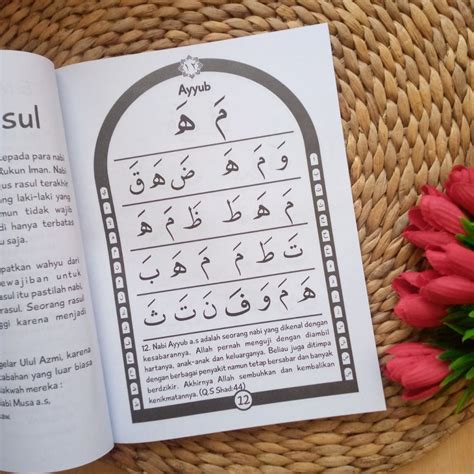 sul
epada para nabi
Rukun Iman. Nabi
us rasul terakhir
ng laki-laki yang
mun tidak wajib
di hanya terbatas
u saja.
patkan wahyu dari
ewajiban untuk
asul itu pastilah nabi,
rasul. Seorang rasul
ggi karena menjadi
gelar Ulul Azmi, karena
abahan yang luar biasa
akwah mereka :
abi Musa a.s,
saw.
١٢
Ayyub
مَ هَ
وَ مَ هَ ضَ هَ قَ
مَ هَ طَ ظَ مَ هَ
تَ طَ مَ مَ هَ بَ
هَ مَ وَ فَ نَ تَ ثَ
12. Nabi Ayyub a.s adalah seorang nabi yang dikenal dengan
kesabarannya. Allah pernah menguji dengan ambil
hartanya, anak-anak dan keluarganya. Beliau juga ditimpa
dengan berbagai penyakit namun tetap bersabar dan banyak
berdzikir. Akhirnya Allah sembuhkan dan kembalikan
kenikmatannya. (Q.S Shad:44)
12